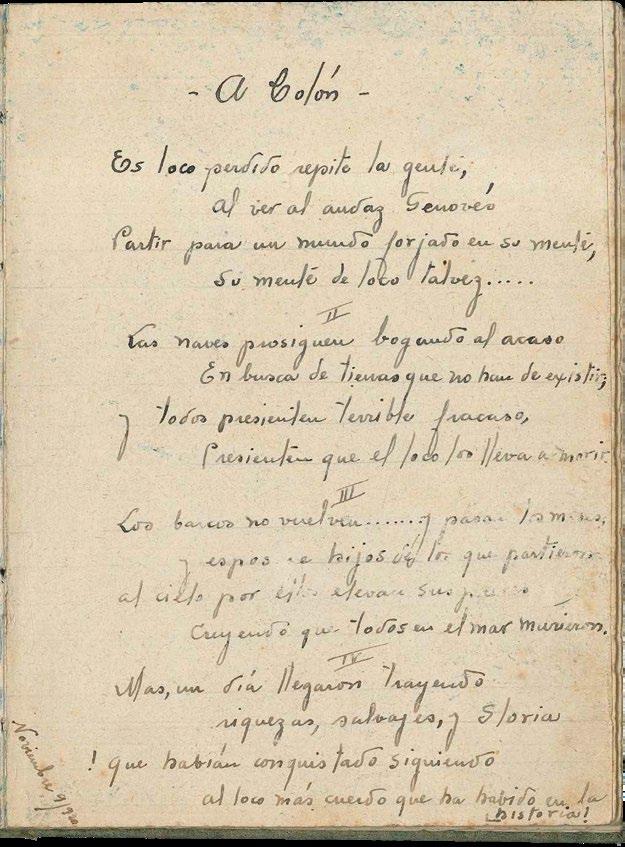 - A Colón -
Es loco perdido repite la gente,
al ver al audaz Genovés
Partir para un mundo forjado en su mente,
Su mente de loco talvez.....
II
Las naves prosiguen bogando al acaso
En busca de tierras que no han de existir,
y todos presienten terrible fracaso,
Presienten que el loco los lleva a morir.
III
Los barcos no vuelven....... y pasan los meses,
y hijos de los que partieron
al cielo por ellos elevan sus
Creyendo que todos en el mar murieron.
IV
Mas, un día llegaron trayendo
riquezas, salvajes, y Gloria
! que habían conquistado siguiendo
al loco más cuerdo que ha habido en la
historia!
Noviembre 9/920